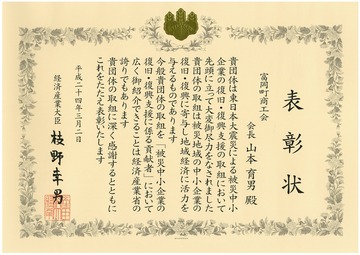 表彰状
富岡町商工会
会長 山本育男 殿
貴団体は東日本大震災による被災中小
企業の復旧・復興支援の取組において
先頭に立って大変御尽力をなされました
貴団体の取組は被災地域の中小企業の
復旧・復興に寄与し地域経済に活力を
与えるものであります
今般貴団体の取組を「被災中小企業の
復旧・復興支援に係る貢献者」において
広く御紹介できることは経済産業省の
誇りでもあります
貴団体の取組に深く感謝するとともに
これをたたえ表彰いたします
平成二十四年三月二日
経済産業大臣
枝野幸男